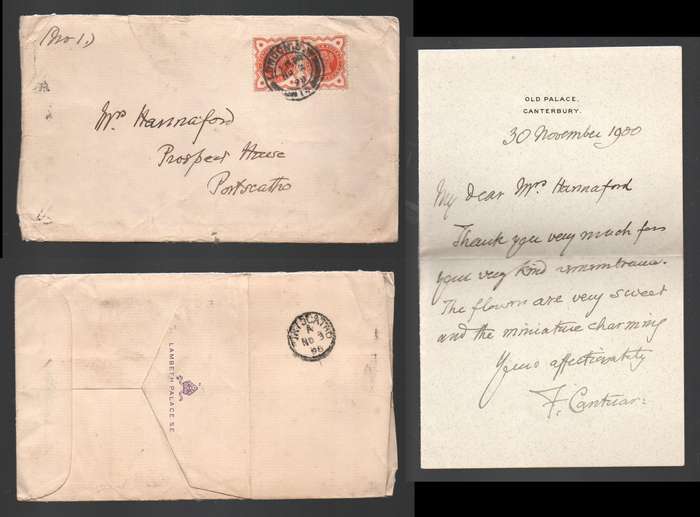 (No 1.)
LONDON S.W.
98
Mrs Hannaford
Prospect House
Portscatho
PORTSCATHO
A
NO 3
98
LAMBETH PALACE S.E.
OLD PALACE,
CANTERBURY.
30 November 1900
My dear Mrs Hannaford
Thank you very much for
your very kind remembrance.
The flowers are very sweet
and the miniature charming
Yours affectionately
F. Cantuar: